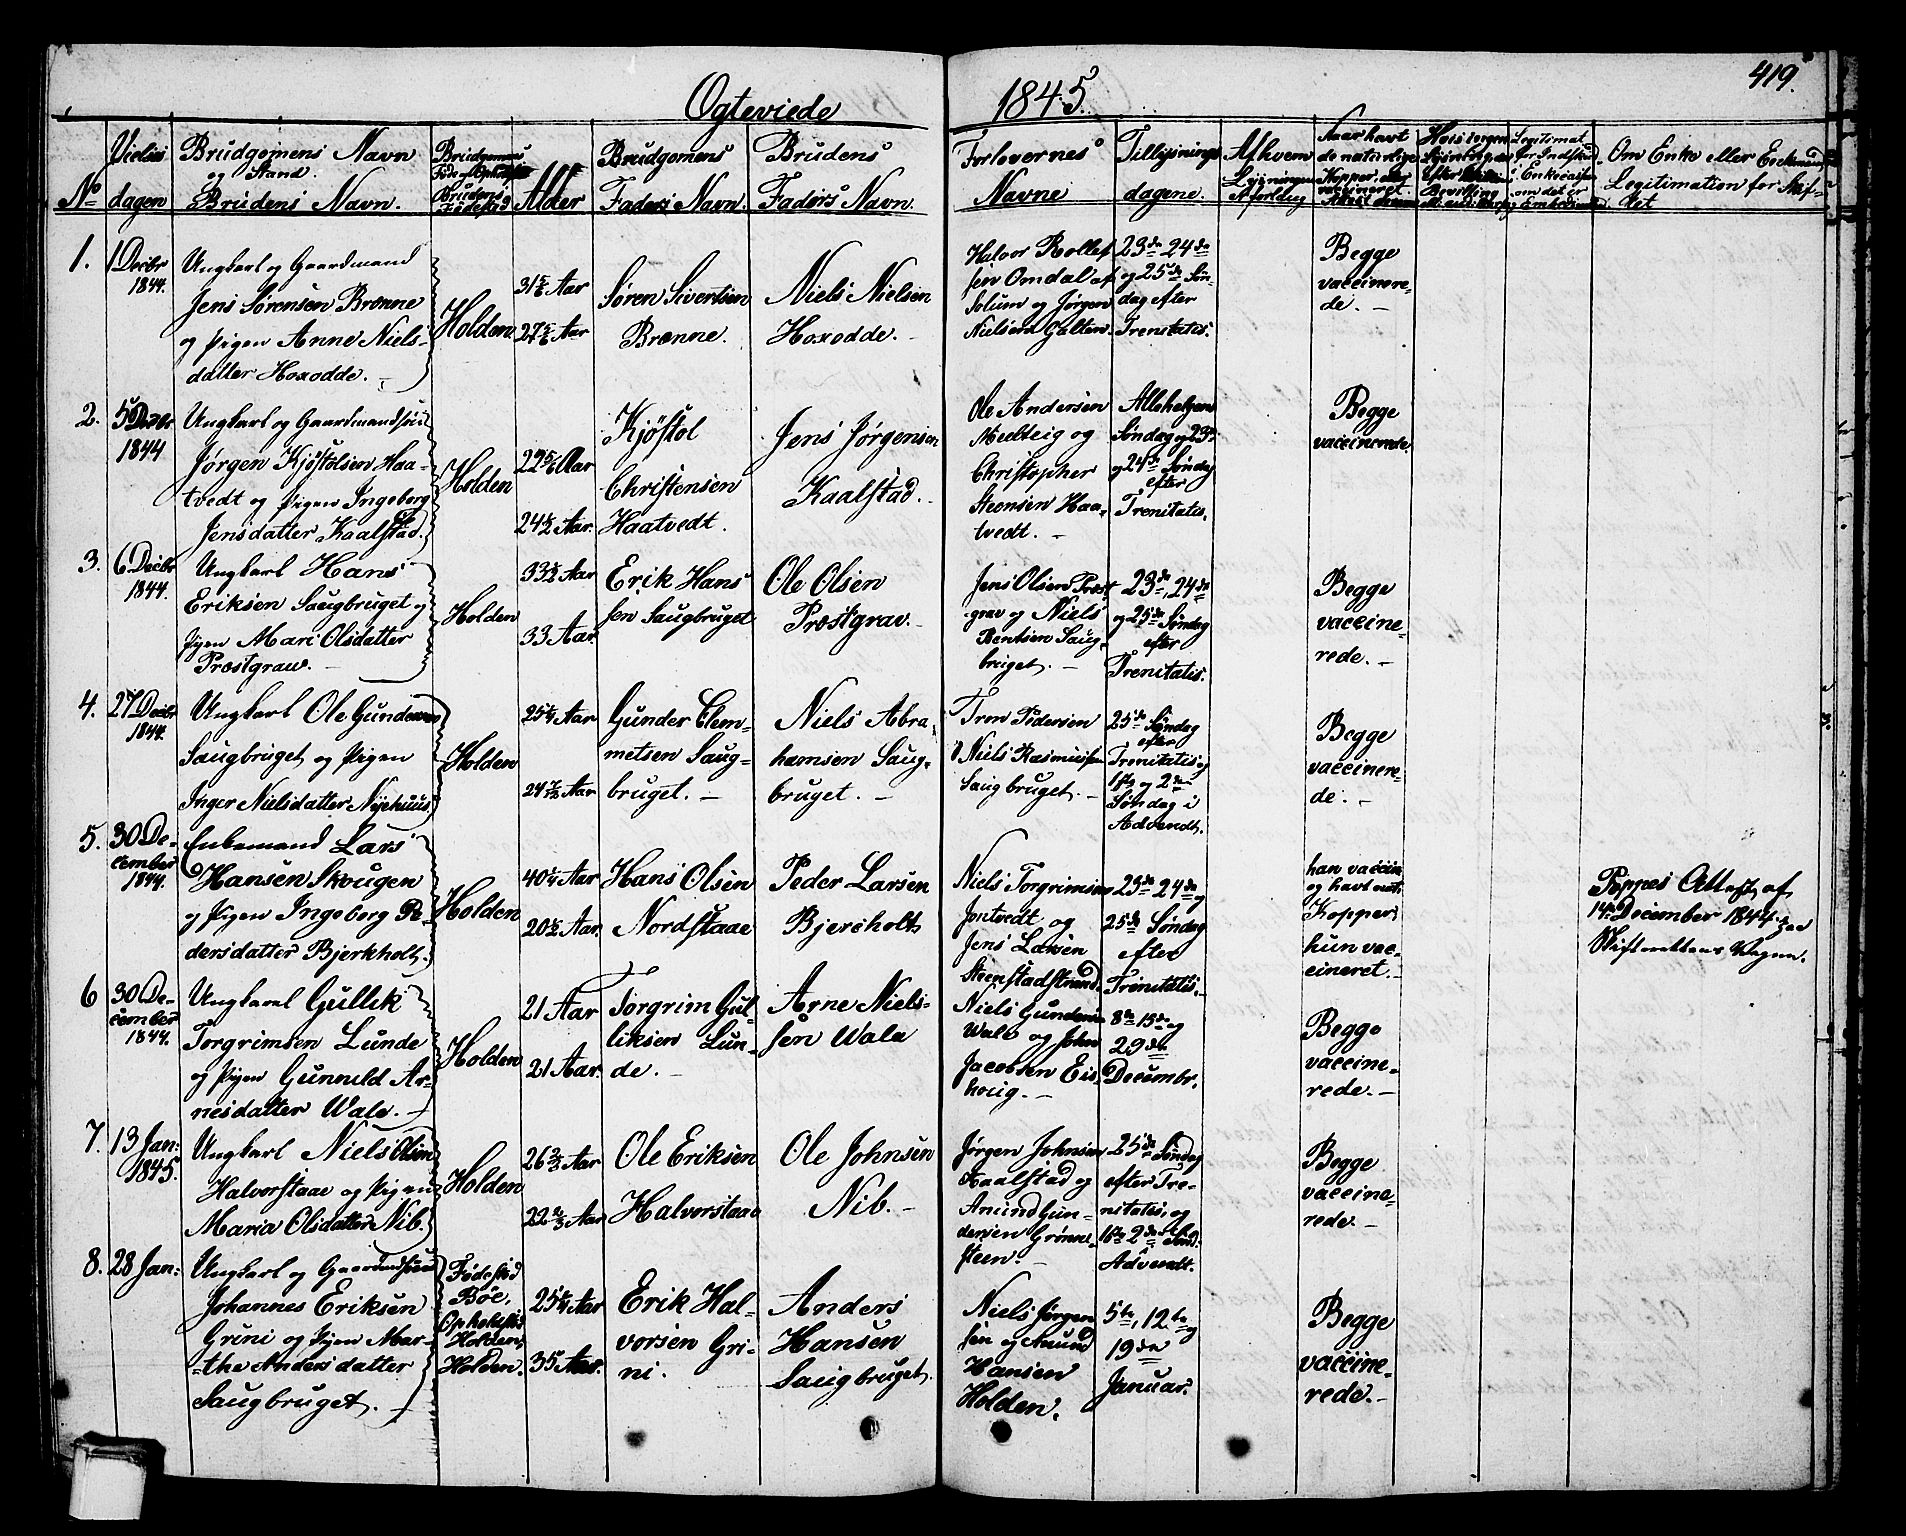 419.
Ogteviede 1845.
No
Vielses dagen
Brudgomens Navn
og Stand.
Brudens Navn.
Brudgomens
Brudens
Fødestæd
Alder
Brudgomens
Faders Navn.
Brudens
Faders Navn.
Forlovernes
Navne
Tillysnings
dagene.
Afhvem
Lysningen
Om Enke eller
Legitimation for Skif-
tet
1.
1 Decbr
1844.
Ungkarl og Gaardmand
Jens Sørensen Brønne
og Pigen Anne Niels-
datter Hoxodde. -
Holden
31 5/6 Aar
27 5/6 Aar
Søren Sivertsen
Brønne.
Niels Nielsen
Hoxodde. -
Halvor Rollef
sen Omdal af
Solum og Jørgen
Nielsen Galten.
23de 24de
og 25de Søn-
dag efter
Trenitatis.
Begge
vaccinere-
de. -
2.
5 Decbr
1844
Ungkarl og Gaardmandssøn
Jørgen Kjøstolsen Haa-
tvedt og Pigen Ingeborg
Jensdatter Kaalstad.
Holden
22 5/6 Aar
24 1/2 Aar.
Kjøstol
Christensen
Haatvedt.
Jens Jørgensen
Kaalstad.
Ole Andersen
Midteig og
Christopher
Steensen Haa-
tvedt. -
Allehelgens
Søndag og 23de
og 24de Søndag
efter
Trenitatis.
Begge
vaccinerede
3.
6 Decbr
1844.
Ungkarl Hans
Eriksen Saugbruget og
Pigen Mari Olsdatter
Præstgrav. -
Holden
33 1/2 Aar
33 Aar.
Erik Hans
sen Saugbruget
Ole Olsen
Præstgrav. -
Jens Olsen Præst
grav og Niels
Bentsen Saug-
bruget. -
23de, 24de
og 25de Søndag
efter
Trenitatis.
Begge
vaccine-
rede. -
4.
27 Decbr
1844.
Ungkarl Ole Gundersen
Saugbruget og Pigen
Inger Nielsdatter Nyehuus
Holden
25 1/4 Aar
24 7/12 Aar
Gunder Clem-
metsen Saug-
bruget. -
Niels Abra
hamsen Saug-
bruget. -
Tron Pedersen
Niels Rasmussen
Saugbruget. -
25de Søndag
efter
Trenitatis og
1ste og 2de
Søndag i
Advendt.
Begge
vaccinere-
de. -
5.
30 De-
cember
1844.
Enkemand Lars
Hansen Skougen
og Pigen Ingeborg Pe-
dersdatter Bjerkholt.
Holden
40 1/4 Aar
20 1/2 Aar.
Hans Olsen
Nordstaae
Peder Larsen
Bjercholt
Niels Torgrimsen
Jontvedt og
Jens Larsen
Steenstadstrand.
23de 24de og
25de Søndag
efter
Trenitatis.
han vaccin
og havt nat.
Kopper,
hun vac-
cineret. -
Poppes Attest af
14de December 1844 paa
Skifterettens Vegne.
6
30 De-
cember
1844.
Ungkarl Gullik
Torgrimsen Lunde
og Pigen Gunnild Ar-
nesdatter Wale. -
Holden
21 Aar
21 Aar.
Torgrim Gul-
liksen Lun-
de. -
Arne Niels-
sen Wale
Niels Gundersen
Wale og John
Jacobsen Eis-
houg. -
8de 15de og
29de
Decembr.
Begge
vaccine-
rede. -
7.
13 Jan:
1845.
Ungkarl Niels Olsen
Halvorstaae og Pigen
Maria Olsdatter Nib.
Holden
26 2/3 Aar
22 2/3 Aar
Ole Eriksen
Halvorstaae
Ole Johnsen
Nib. -
Jørgen Johnsen
Kaalstad og
Amund Gun-
dersen Grønne-
steen. -
25de Søndag
efter Tre-
nitatis, og
1ste 2de Sønd:
Advendt.
Begge
vaccine-
rede. -
8.
28 Jan:
Ungkarl og Gaardmandssøn
Johannes Eriksen
Grini og Pigen Mar-
the Andersdatter
Saugbruget. -
Fødestæd
Bøe,
Opholdsted
Holden,
Holden.
25 1/4 Aar
35 Aar.
Erik Hal-
vorsen Gri-
ni.
Anders
Hansen
Saugbruget.
Niels Jørgen
sen og Amund
Hansen
Holden.
5te, 12te og
19de
Januar.
Begge
vaccine-
rede. -